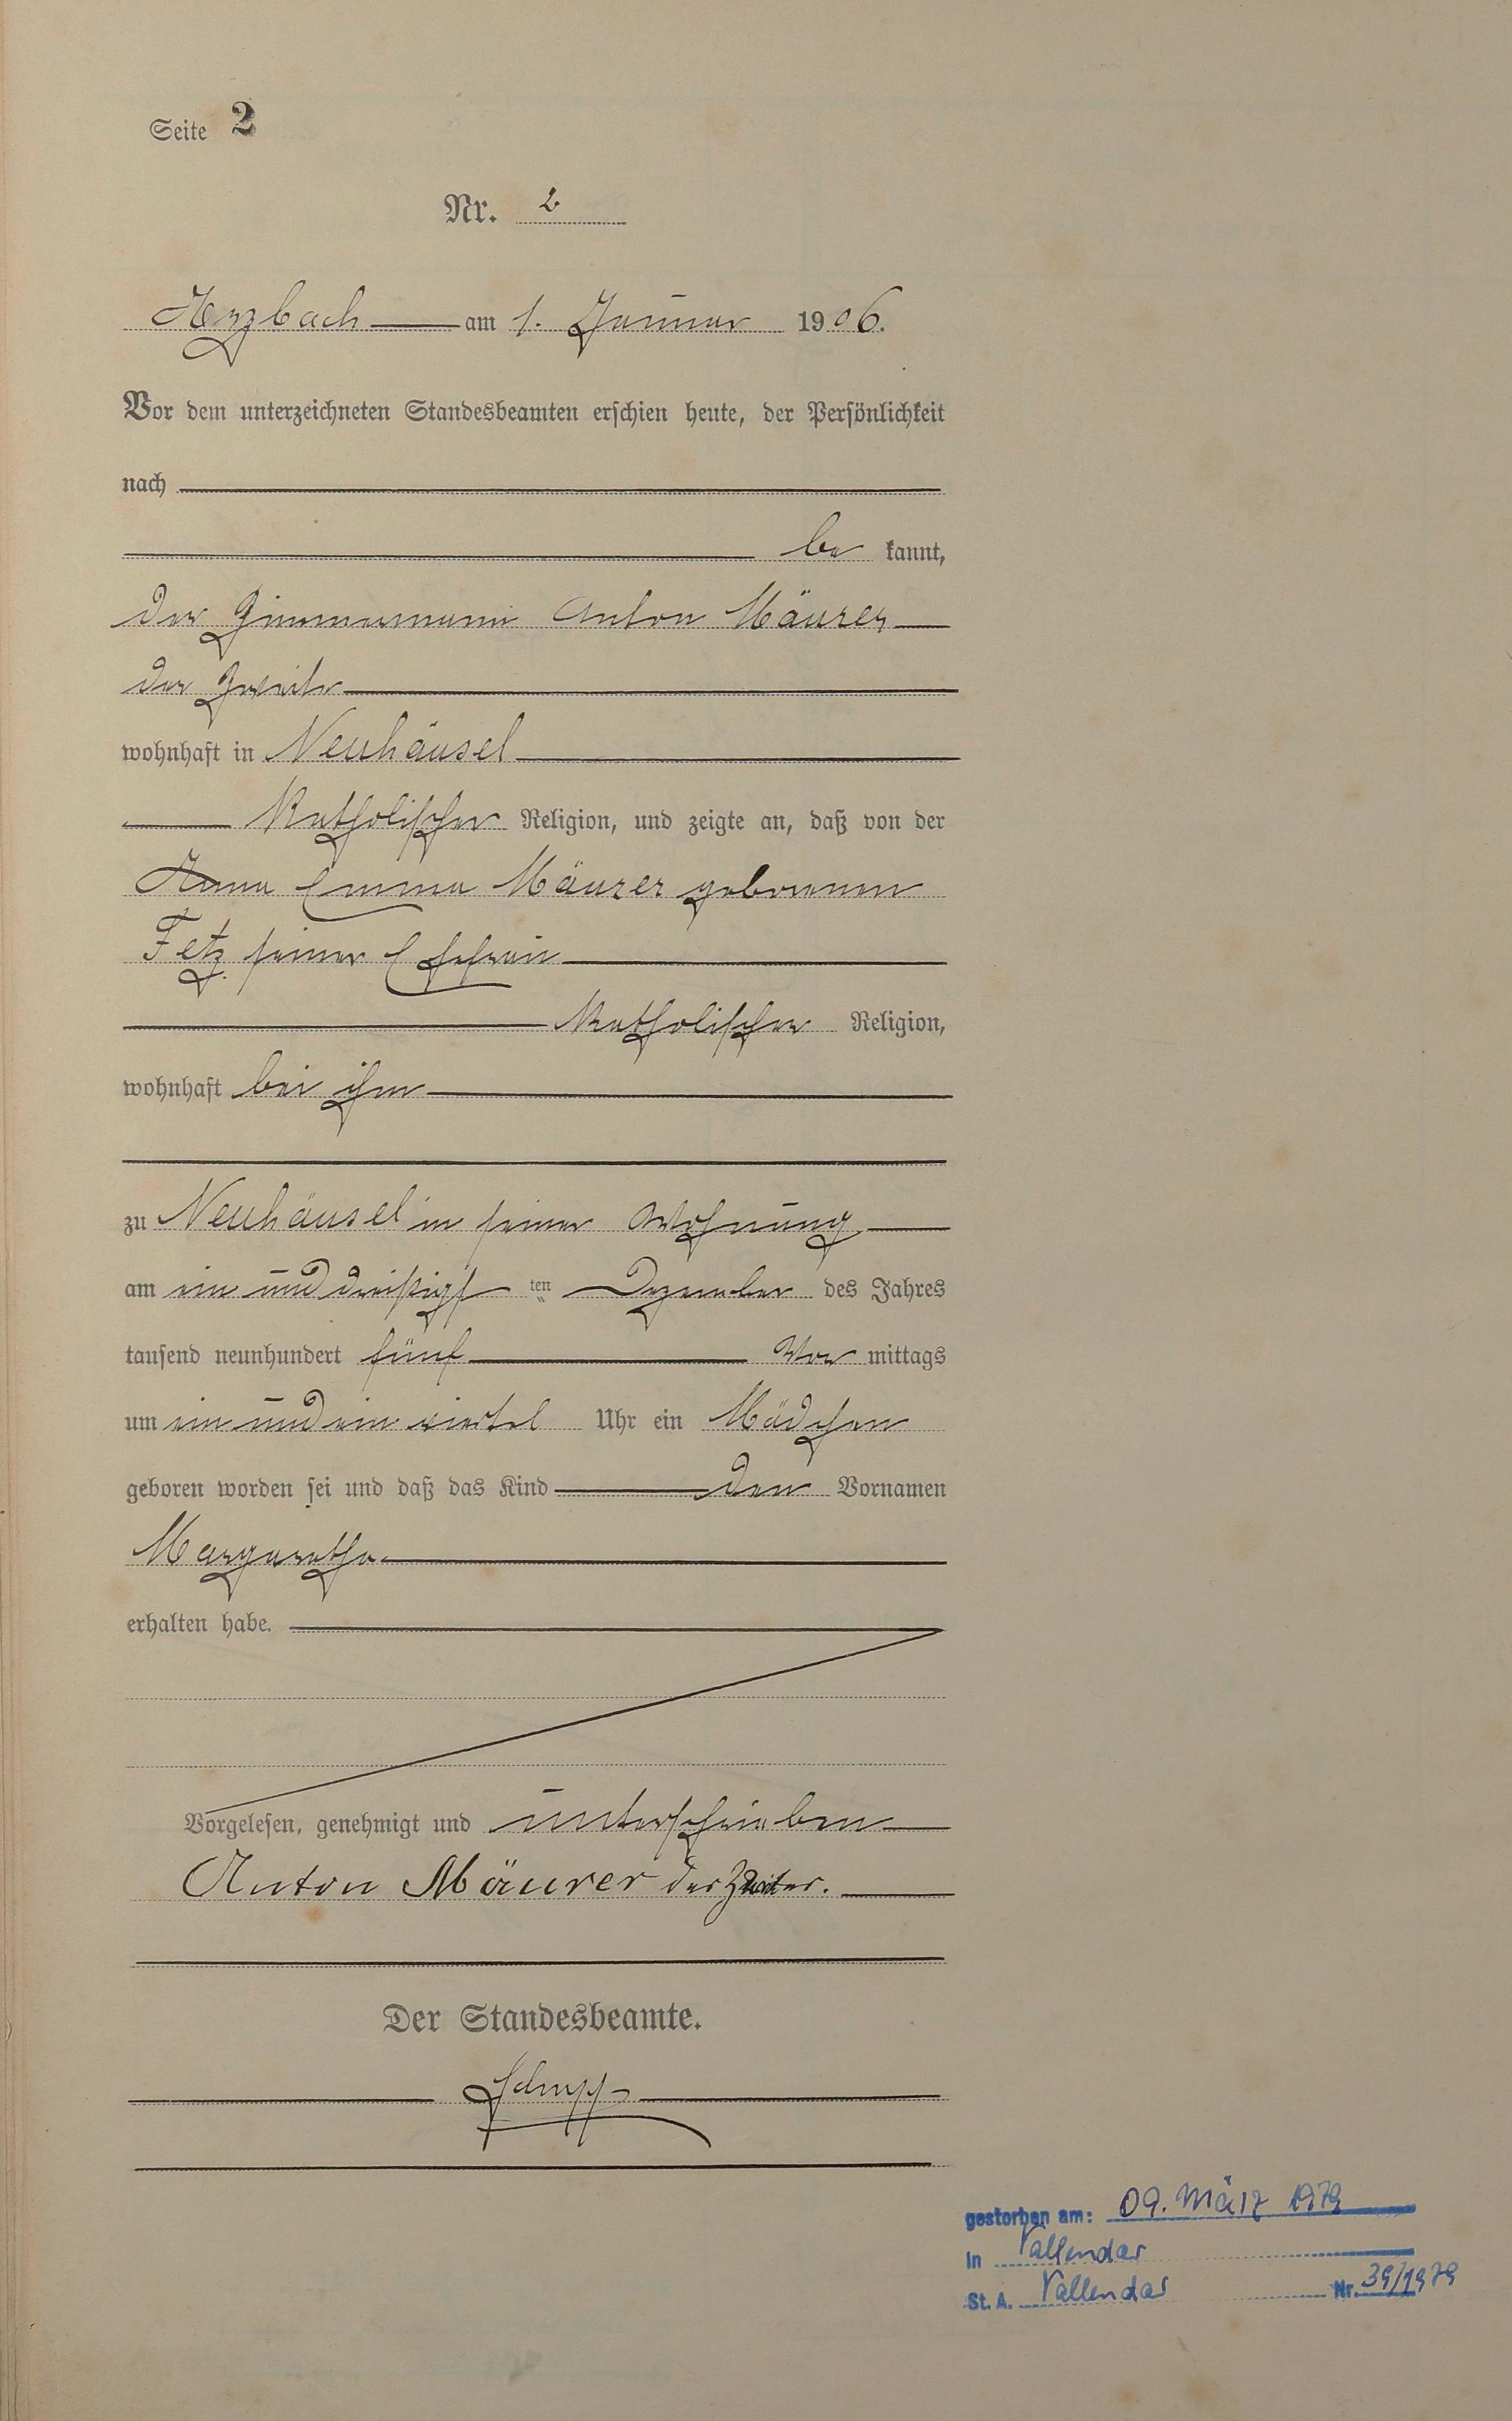 Seite 2
Nr. 2
Arzbach am 1. Januar 1906.
Vor dem unterzeichneten Standesbeamten erschien heute, der Persönlichkeit
nach
be kannt,
der Zimmermann Anton Mäurer
der Zweite
wohnhaft in Neuhäusel
Katholischer Religion, und zeigte an, daß von der
Anna Emma Mäurer geborenen
Fetz seiner Ehefrau
Katholischer Religion,
wohnhaft bei ihm
zu Neuhäusel in seiner Wohnung
am ein und dreißigst ten Dezember des Jahres
tausend neunhundert fünf Vor mittags
um ein und ein viertel Uhr ein Mädchen
geboren worden sei und daß das Kind den Vornamen
Margaretha
erhalten habe.
Vorgelesen, genehmigt und unterschrieben
Anton Mäurer der Zweiter.
Der Standesbeamte.
gestorben am: 09. März 1979
in Vallendar
St. A. Vallendar Nr. 39/1979